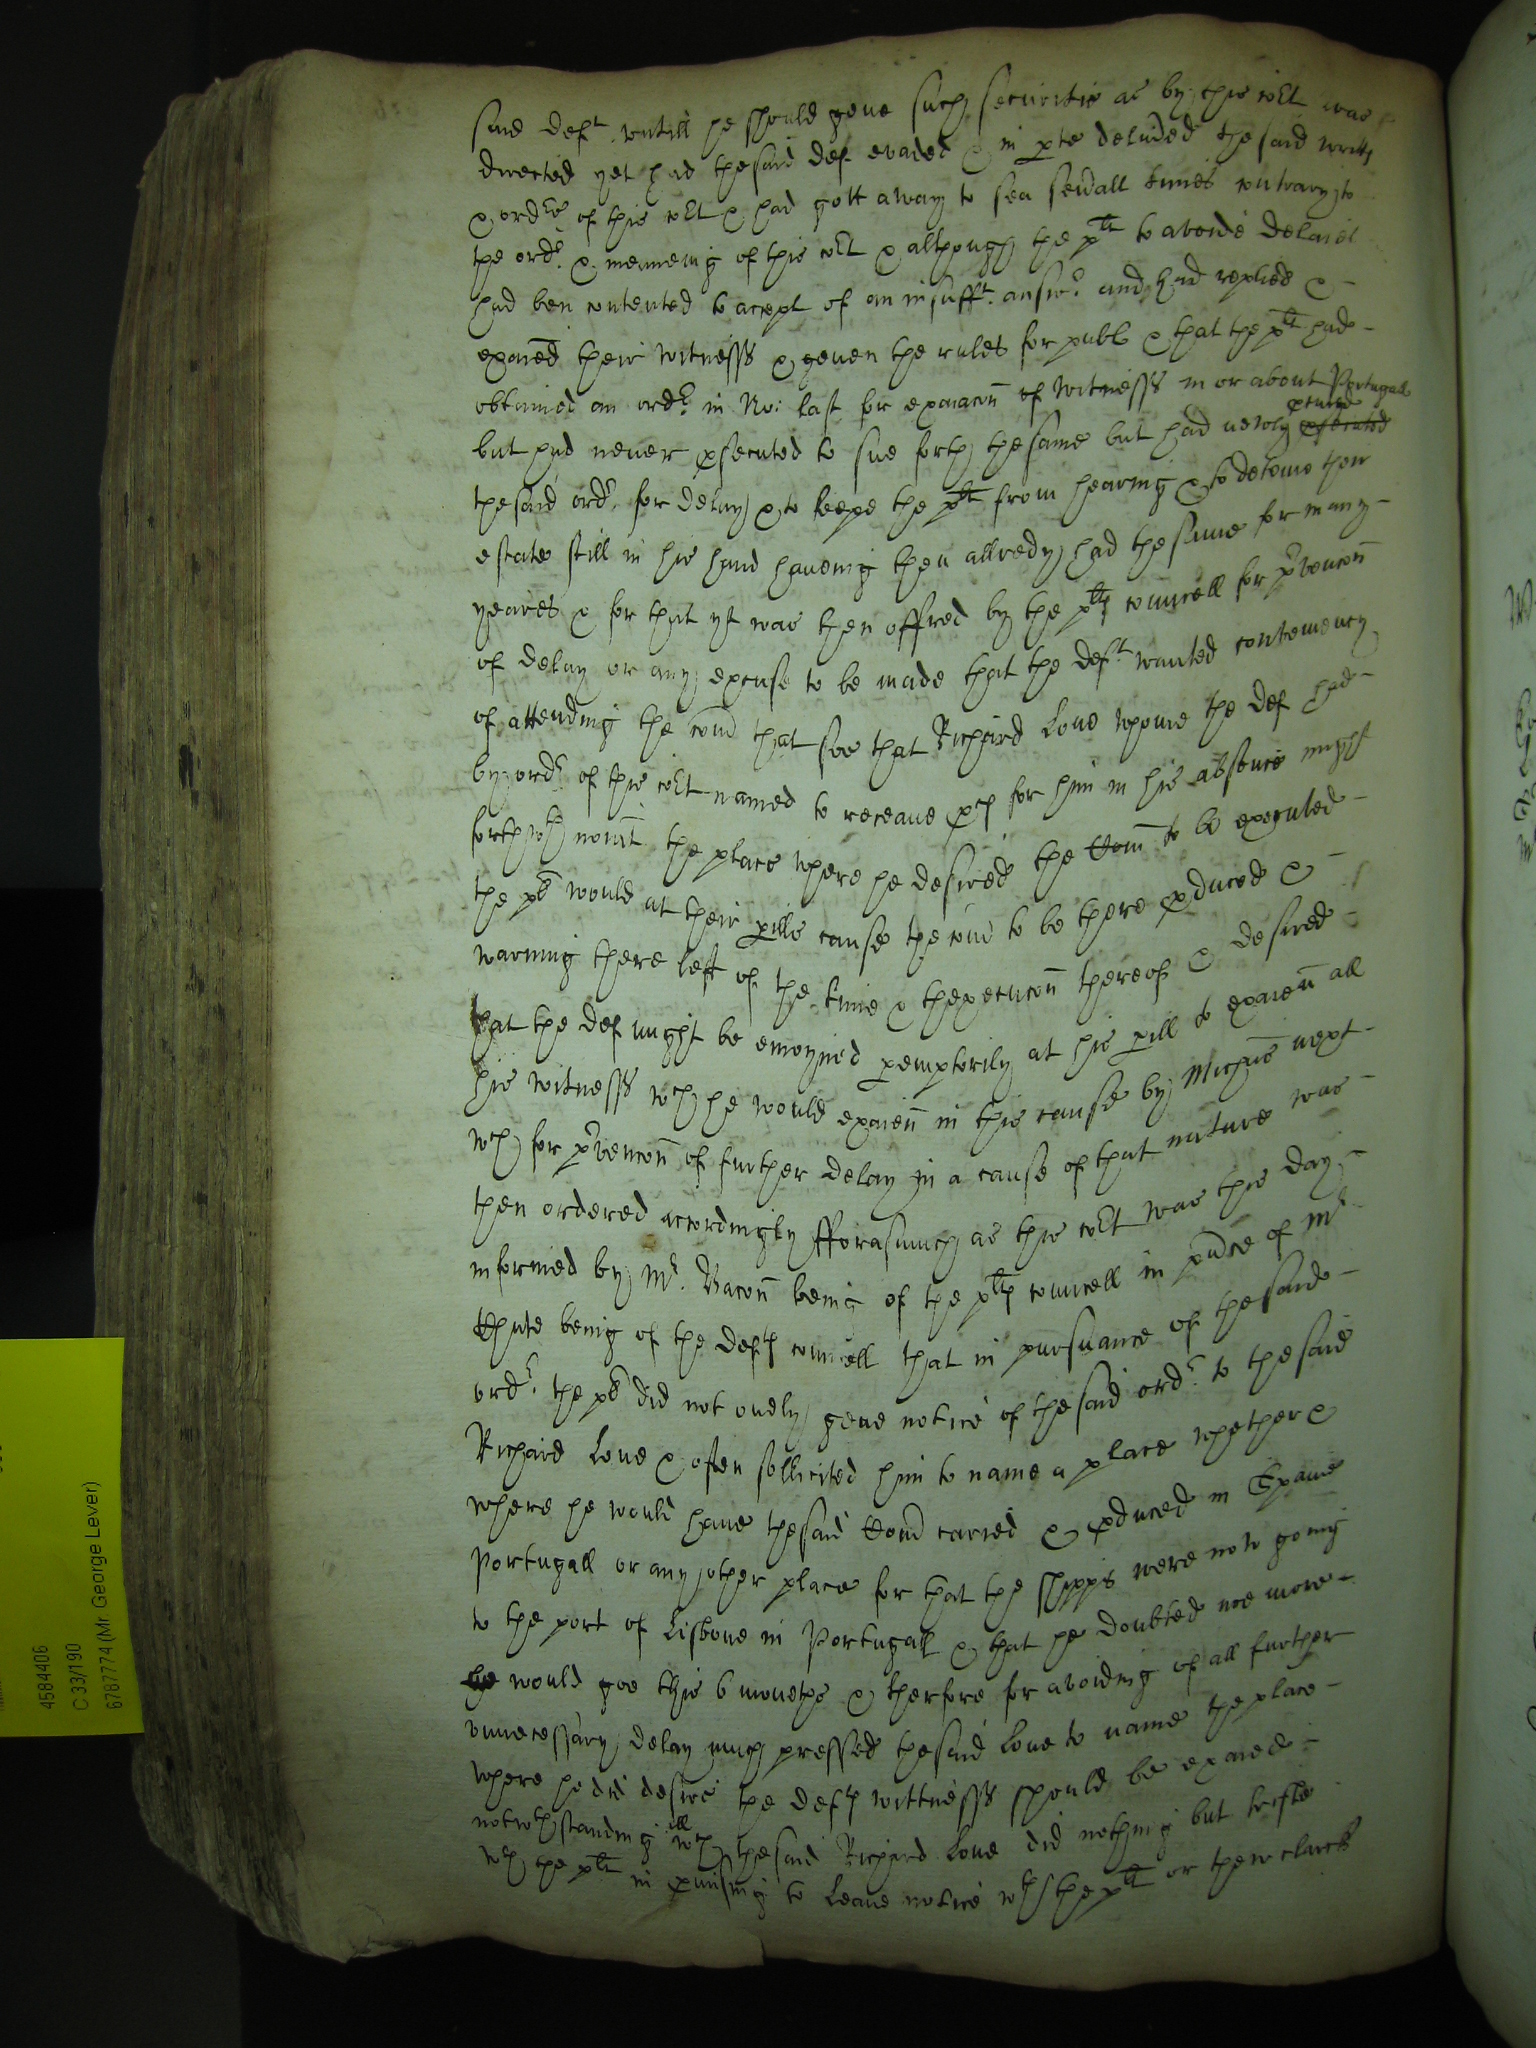 said deft. untill he should geve such securitie as by this cort was
directed yet had the said def evaded & in pte deluded the said writts
& ordrs of this cort & had gott away to sea sevall times contrary to
the ordr. & meaneing of this cort & although the plt to avoide delaies
had ben contented to accept of an insufft. answr. and had replied &
exaied their witnesss & geven the rules for publ & that the plt had
obtained an ordr. in No: last for exaiacon of witnesss in or about Portugall
but had never psecuted to sue forth the same but had
the said ordr. for delay & to keepe the plt from hearing & to deteine their
estate still in his hand haveing then allredy had the same for many
yeares & for that yt was then offred by the plts councell for pvencon
of delay or any excuse to be made that the deft. wanted conveniency
of attending the com that soe that Richard Love whome the def had
by ordr of this cort named to receave pces for him in his absence might
forthwth noiat the place where he desired the Com to be executed
the pl would at their pills cause the com to be there pduced &
warning there left of the time & thexecucon thereof & desired
that the def might be enioyned pemptorily at his pill to exaien all
his witnesss wch he would exaien in this cause by Michais next
wch for pvencon of further delay in a cause of that nature was
then ordered accordingly fforasmuch as this cort was this day
informed by Mr. Bacon being of the plts councell in pnce of Mr
Chute being of the defts councell that in pursuance of the said
ordr. the pl did not onely geve notice of the said ordr. to the said
Richard Love & often sollicited him to name a place whether &
where he would have the said Com caried & pduced in Spaine
Portugall or any other place for that the shipps were now going
to the port of Lisbone in Portugall & that he doubted noe more
he would goe this 6 moneths & therfore for avoiding of all further
unnecessary delay much pressed the said Love to name the place
where he did desire the defts wittnesss should be exaied
notwthstanding all wch the said Richard Love did nothing but trifle
wth the plt in pmising to leave notice wth the plt or their clarck
4584406
C 33/190
6787774 (Mr. George Lever)